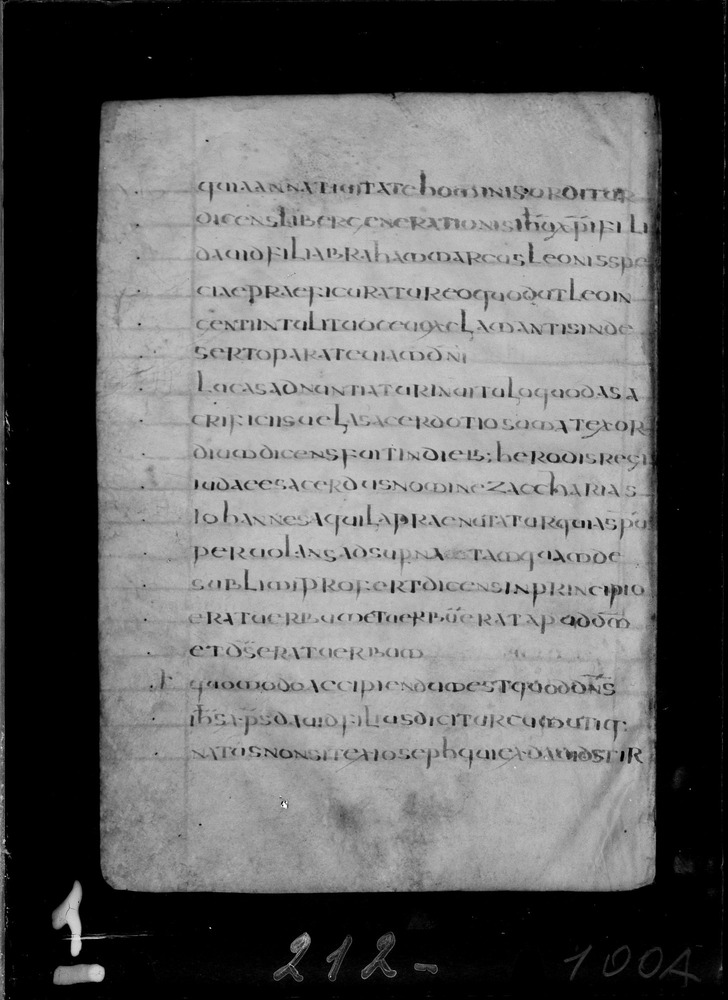 quiaannatiuitatehominisorditur
dicenslibergenerationisihūxp̄ifili
dauidfiliabrahammarcusleonisspe
ciaepraeficuratureoquodutleoin
gentiintulituocemexclamantisinde
sertoparateuiamdn̄i
Lucasadnuntiaturinuituloquodasa
crificiisuelsacerdotiosumatexor
diumdicensfuitindieb;herodisregi
iudaeesacerdusnominezaccharias
Iohannesaquilapraenutaturquiaspu
peruolansadsuprna etamquamde
sublimiprofertdicensinprincipio
eratuerbumetuerbūeratapuddm̄
etds̄eratuerbum
quomodoaccipiendumestquoddn̄s
ih̄sxp̄sdauidfiliusdiciturcumutiq:
natusnonsitexiosephquiexdauidstir
1
212-
100A